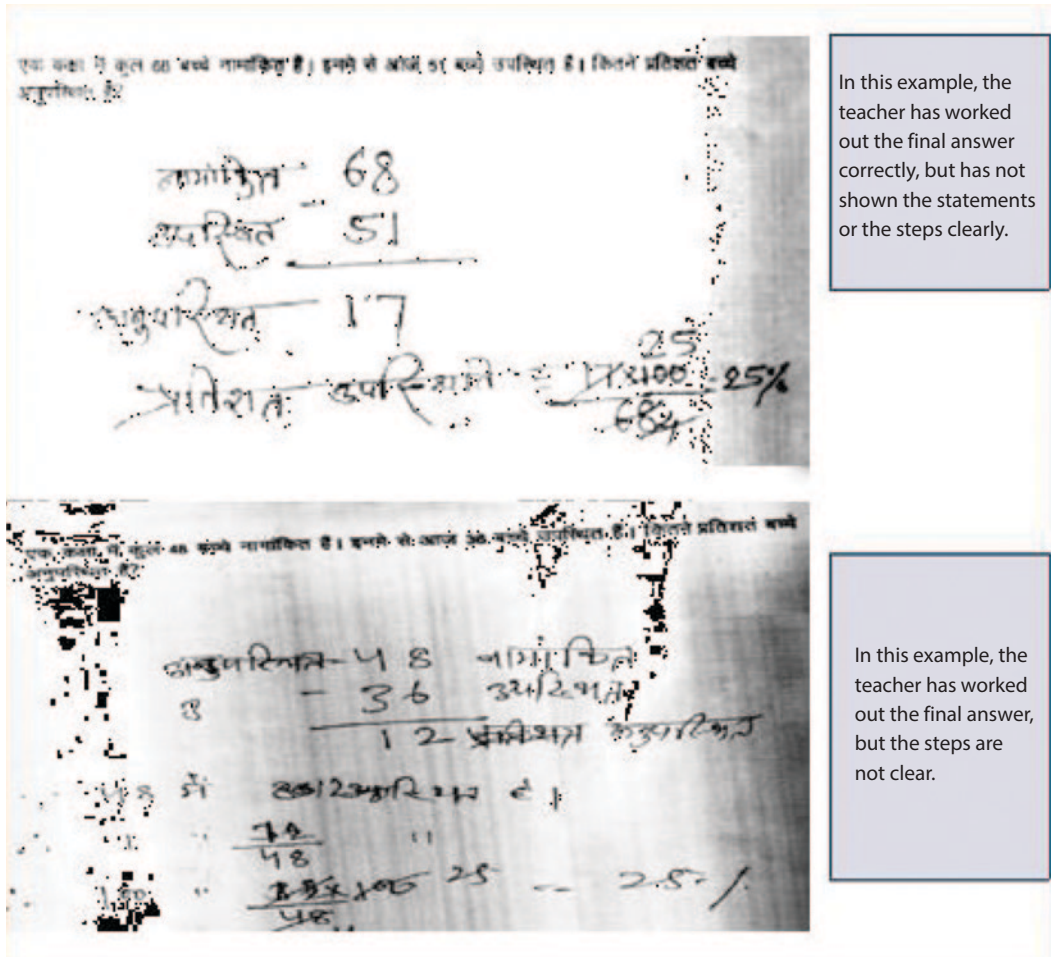 एक कक्षा में कुल 68 बच्चे नामांकित हैं। इनमे से आज 51 बच्चे उपस्थित है। कितने प्रतिशत बच्चे
अनुपस्थित है?
नामांकित - 68
उपस्थित 51
अनुपस्थित 17
प्रतिशत उपस्थिति = 25
17x100 = 25%
68
In this example, the
teacher has worked
out the final answer
correctly, but has not
shown the statements
or the steps clearly.
एक कक्षा में कुल 48 बच्चे नामांकित हैं। इनमे से आज 36 बच्चे उपस्थित हैं। कितने प्रतिशत बच्चे
अनुपस्थित है?
अनुपस्थित - 48 नामांकित
- 36 उपस्थित
12 अनुपस्थित
48 में
48
100
48
25 25%
In this example, the
teacher has worked
out the final answer,
but the steps are
not clear.